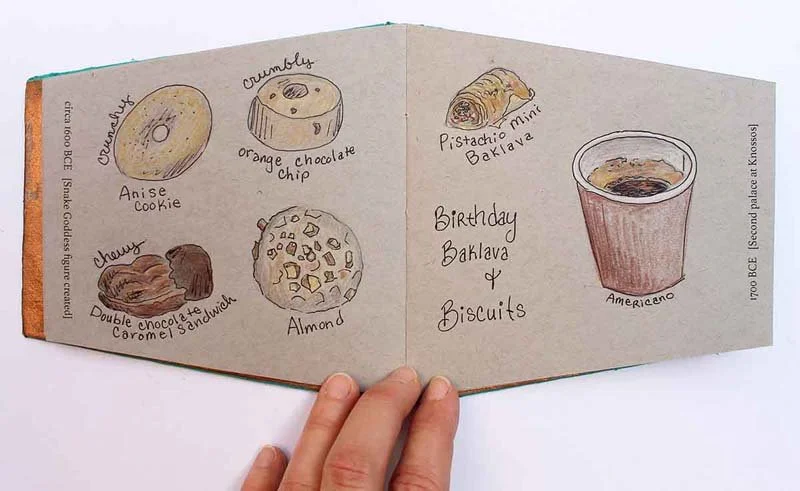 circa 1600 BCE [Snake Goddess figure created]
crunchy
Anise
Cookie
crumbly
orange chocolate
chip
chewy
Double chocolate
Caramel Sandwich
Almond
Pistachio mini
Baklava
Birthday
Baklava
&
Biscuits
Americano
1700 BCE [Second palace at Knossos]